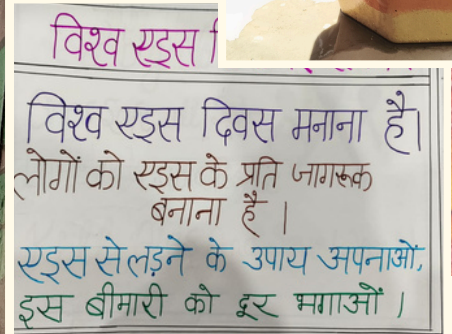 विश्व एड्स
विश्व एड्स दिवस मनाना है।
लोगों को एड्स के प्रति जागरूक
बनाना है ।
एड्स से लड़ने के उपाय अपनाओं,
इस बीमारी को दूर भगाओं ।